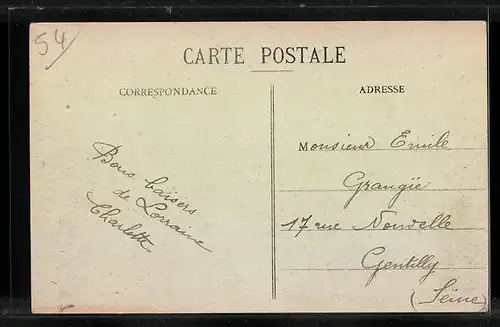 54
CARTE POSTALE
CORRESPONDANCE
Bons baisers
de Lorraine
Charlotte
ADRESSE
Monsieur Emile
Grangïe
17 rue Nouvelle
Gentilly
(Seine)